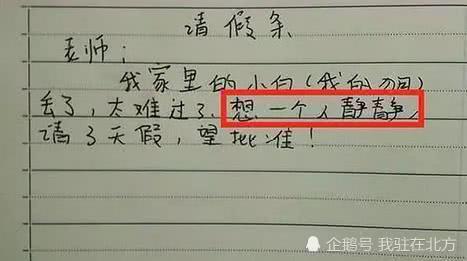 请假条
老师：
我家里的小白（我的狗）
丢了，太难过了，想一个人静静，
请3天假，望批准！
企鹅号 我驻在北方